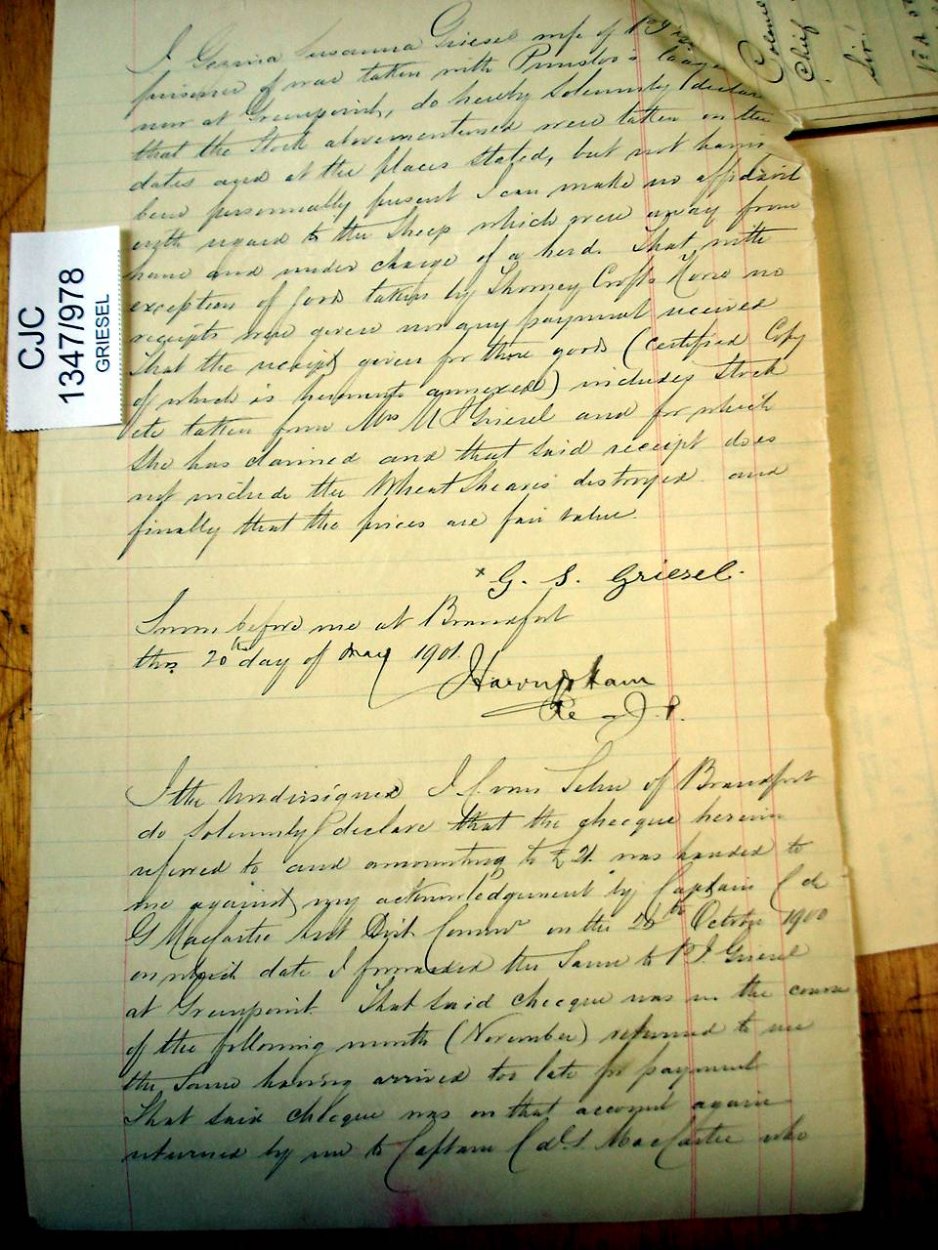 I Gesina Susanna Griesel wife of P J
prisoner of war taken with Prinsloo's laager
now at Greenpoint, do hereby Solemnly declare
that the Stock abovementioned were taken on the
dates and at the places stated, but not having
been personally present I can make no affidavit
with regard to the Sheep which were away from
home and under charge of a herd. That with
exception of goods taken by Thorney Crofts Horse no
receipts were given nor any payment received
That the receipt given for those goods (certified Copy
of which is hereunto annexed) includes Stock
etc taken from Mrs M J Griesel and for which
She has claimed and that said receipt does
not include the Wheat Sheaves destroyed and
finally that the prices are fair value
x G. S. Griesel.
Sworn before me at Brandfort
this 20th day of May 1901.
J.P.
I the Undersigned of Brandfort
do Solemnly declare that the checque herein
referred to and amounting to £21 was handed to
me against my acknowledgement by Captain C de
G MacCartie Asst Dist Commr on the 26th October 1900
on which date I forwarded the same to P J Griesel
at Greenpoint. That said checque was in the course
of the following month (November) returned to me
the Same having arrived too late for payment
That said checque was on that account again
returned by me to Captain C de G MacCartie who
CJC
1347/978
GRIESEL
Colonel
Chief
Sir!